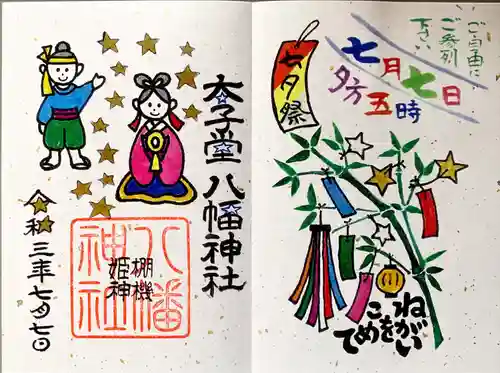 ご自由に
ご参列
下さい
七月七日
夕方五時
七夕祭
ねがい
をこ
めて
太子堂八幡神社
八幡
神社
棚機
姫神
令和三年七月七日